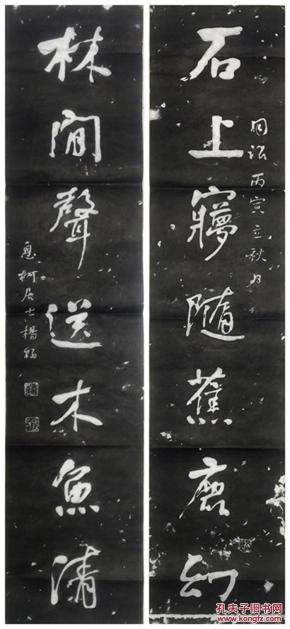 石上夢隨蕉鹿幻
同治丙寅立秋日
林間聲送木魚清
息柯居士楊翰
孔夫子旧书网